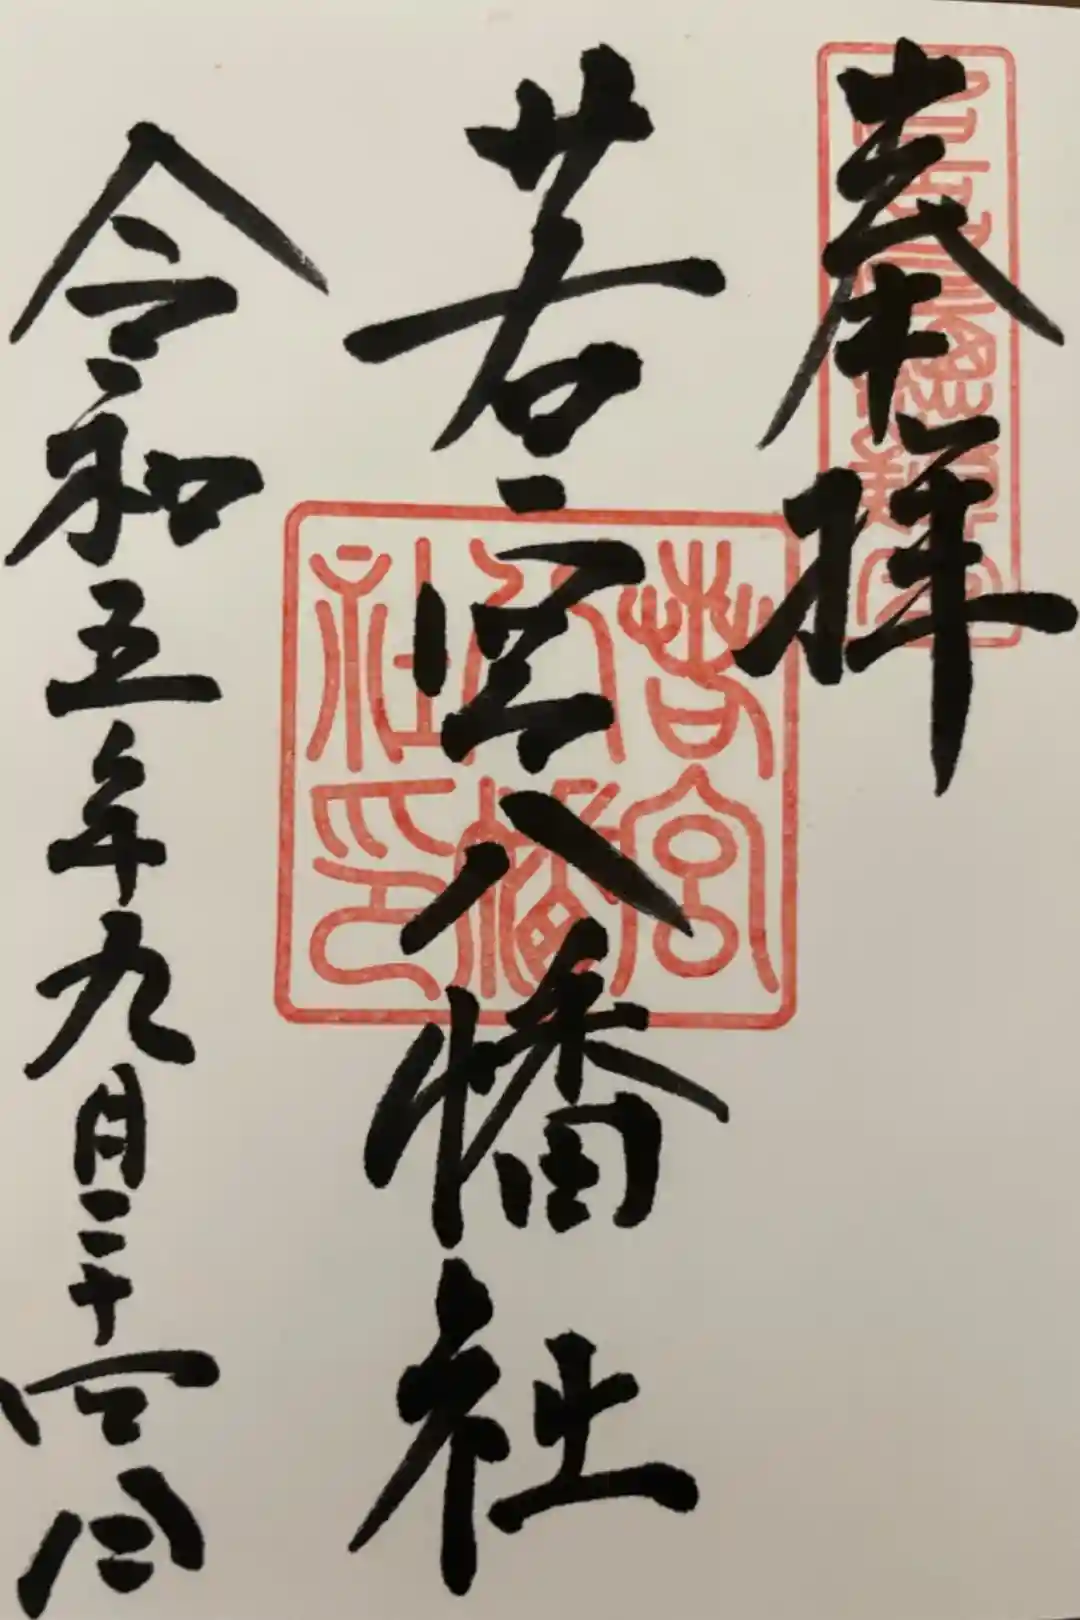 奉拝
若宮八幡社
若宮八幡社印
令和五年九月二十四日